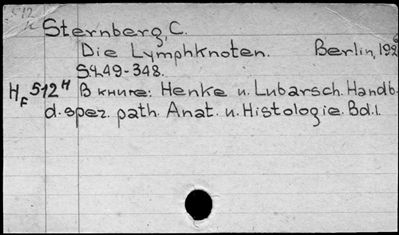 Sternberg, C.
Die Lymphknoten. Berlin, 192
S. 249-348.
H F 512 H В книге: Henke u. Lubarsch. Handb.
d. spez. path. Anat. u. Histologie. Bd. 1.